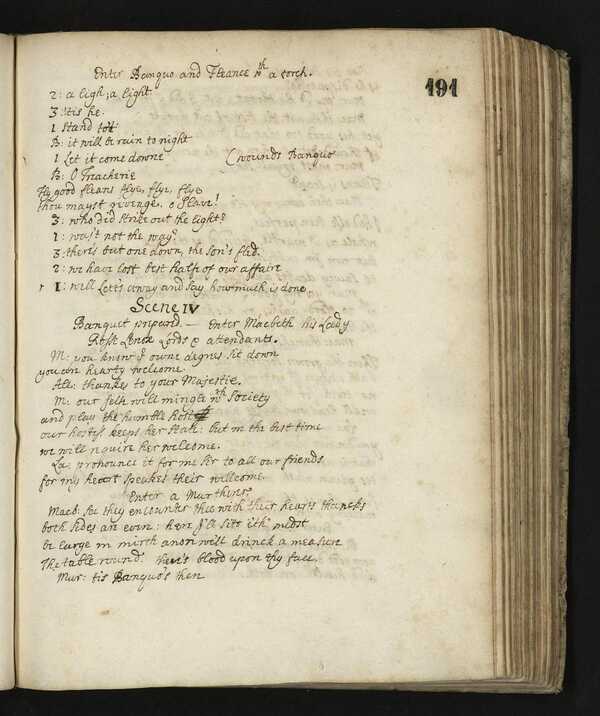 Enter Banquo and Fleance wth a torch.
191
2: a light, a light
3 'tis he
1 Stand to't
B: it will be rain to night
1 Let it come downe (wounds Banquo
B: O Treacherie
Fly good fleans flye, flye, flye
thou mayst revenge. o Slave!
3: who did strike out the light?
1: was't not the way?
3: there's but one down, the son's fled.
2: we have lost best half of our affaire
1: well Let's away and say how much is done
Scene IV
Banquet prepared — Enter Macbeth his Lady
Rosse Lenox Lords & attendants.
M: you know yr owne degres sit down
you can hearty wellcome
All: thankes to your Majestie.
M: our self will mingle wth society
and play the humble host
our hostess keeps her state: but in the best time
we will require her welcome.
La: pronounce it for me Sir to all our friends
for my heart speakes their wellcome.
Enter a Murtherer
Macb: See they encounter thee with their hearts thancks
both sides are even: here I'le sitt i'th' midst
be large in mirth anon will drinck a measure
the table round. there's blood upon thy face.
Mur: tis Banquo's then